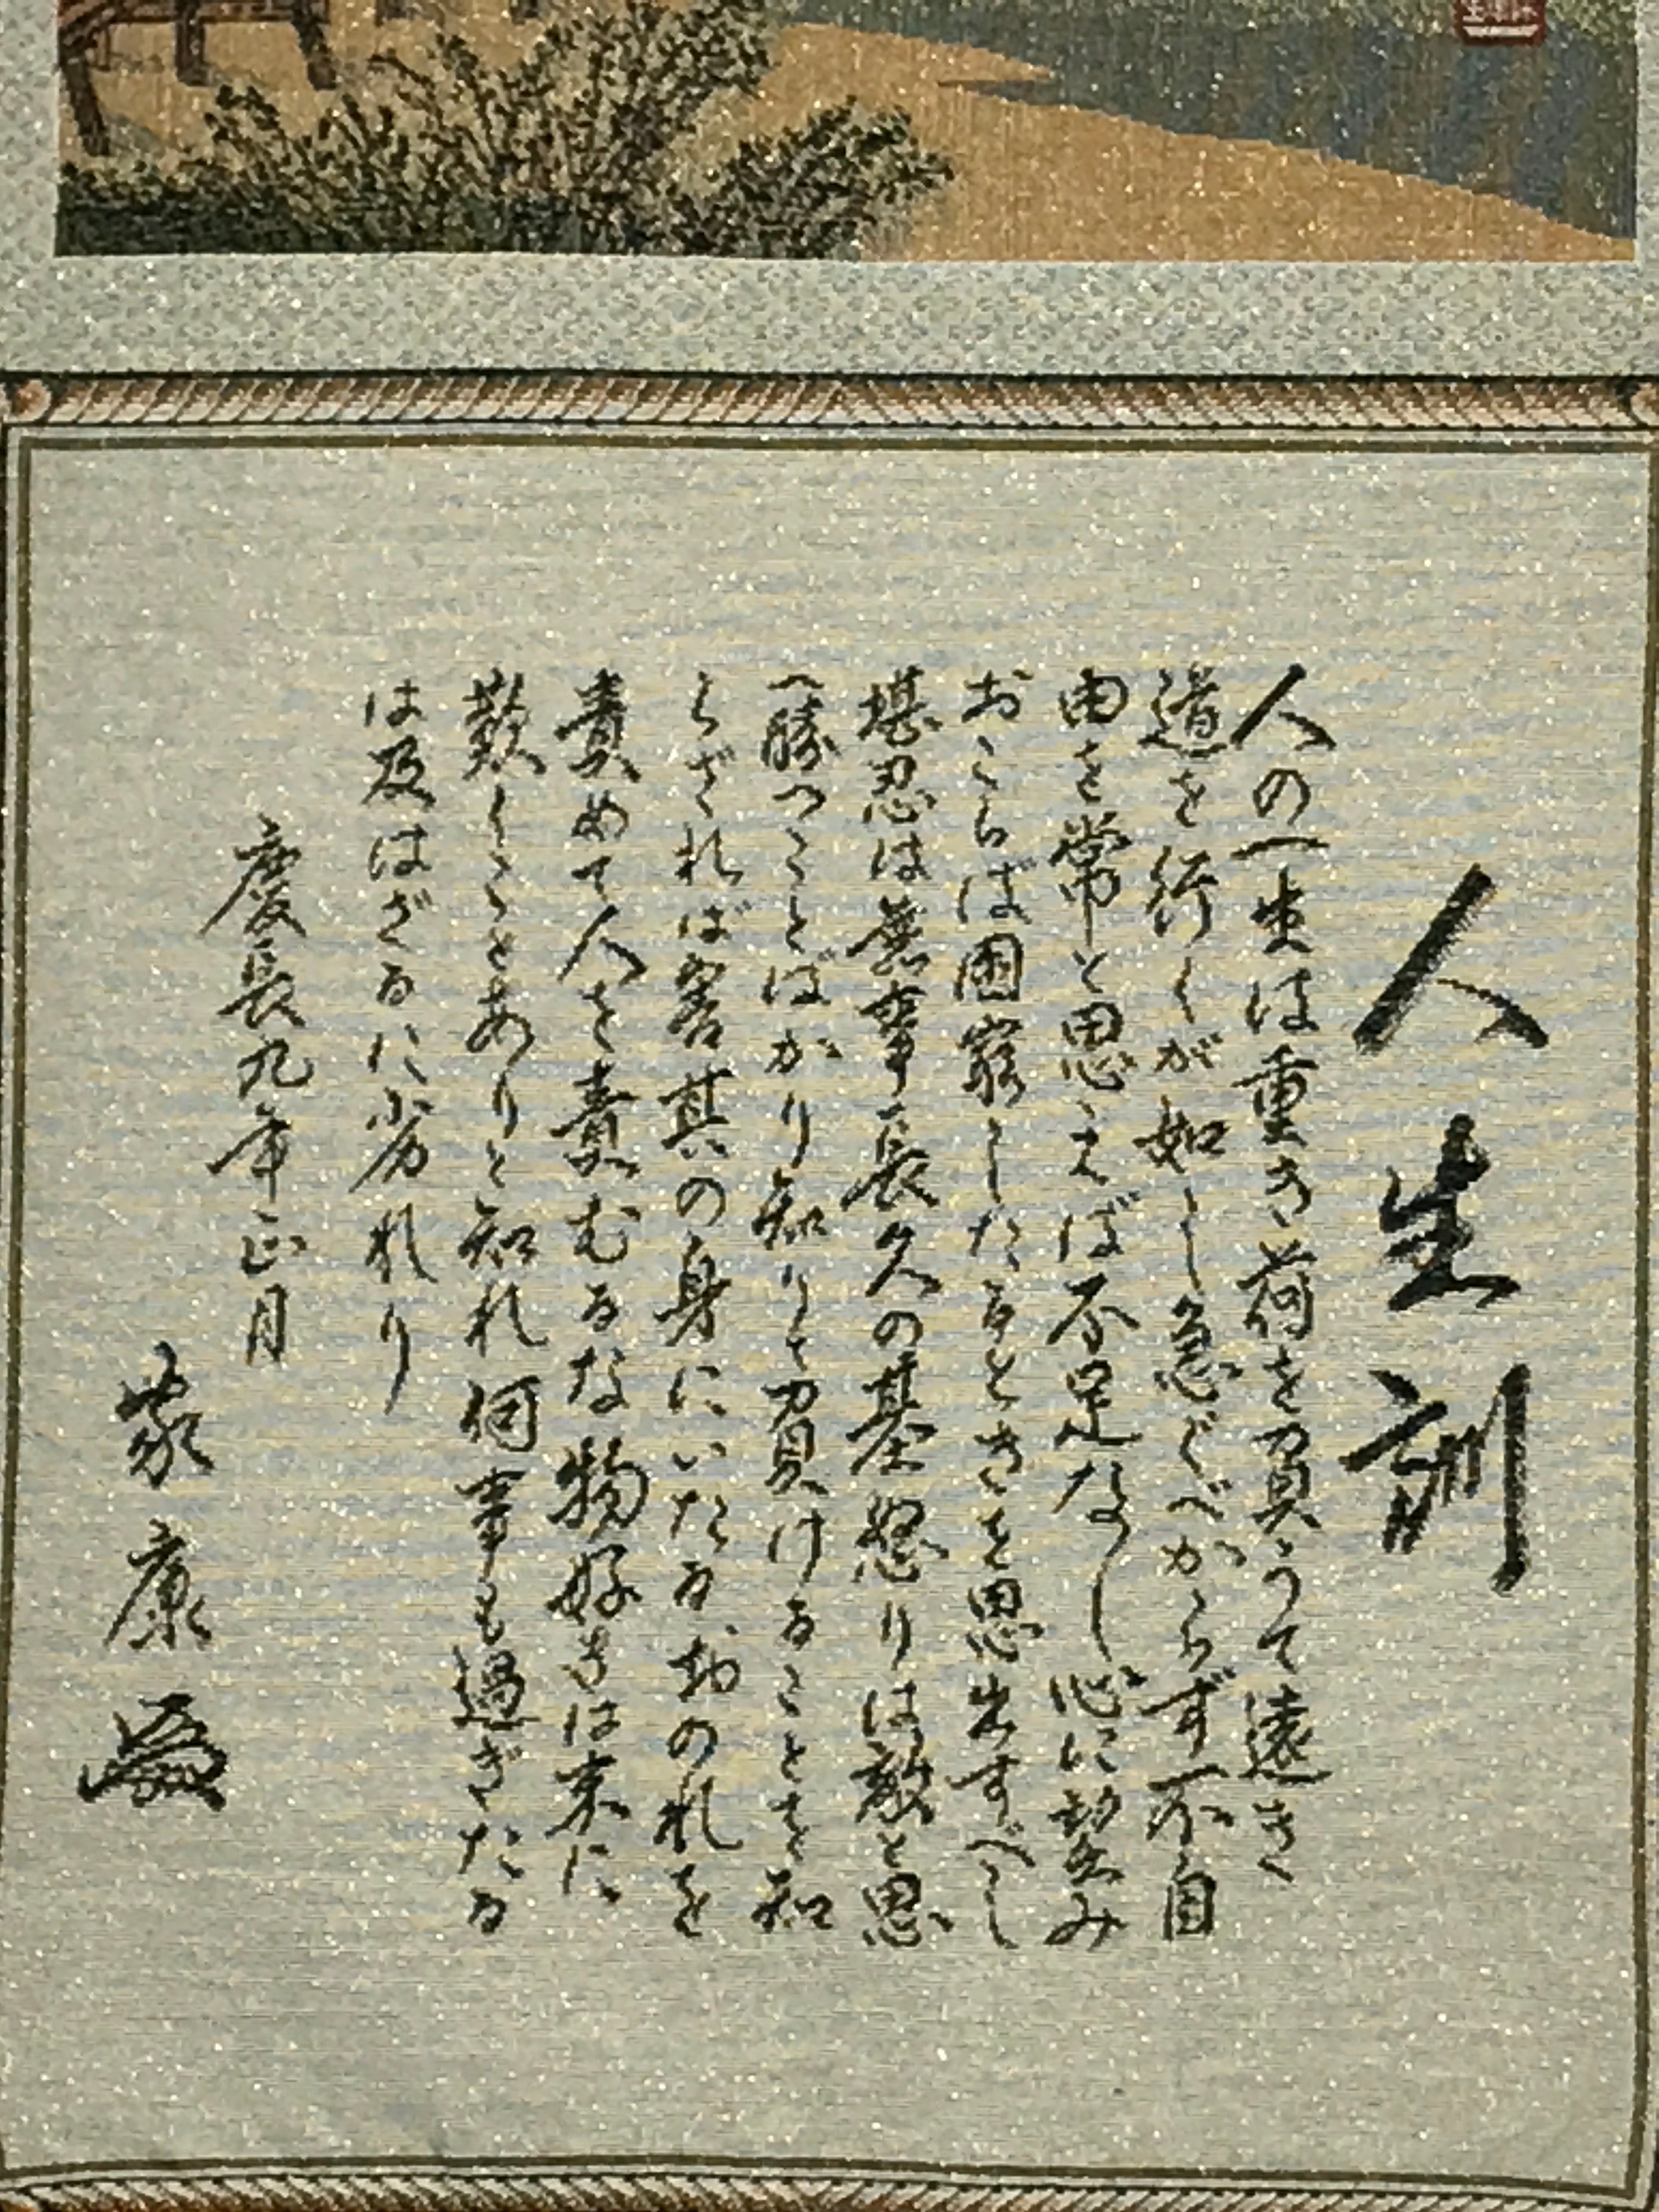 人生訓
人の一生は重き荷を負うて遠き
道を行くが如し急ぐべからず不自
由を常と思えば不足なし心に望み
おこらば困窮したるときを思出すべし
堪忍は無事長久の基怒りは敵と思
へ勝つことばかり知りて負けることを知
らざれば害其の身にいたるおのれを
責めて人を責むるな物好きは末に
歎くことありと知れ何事も過ぎたる
は及ばざるに劣れり
慶長九年正月
家康